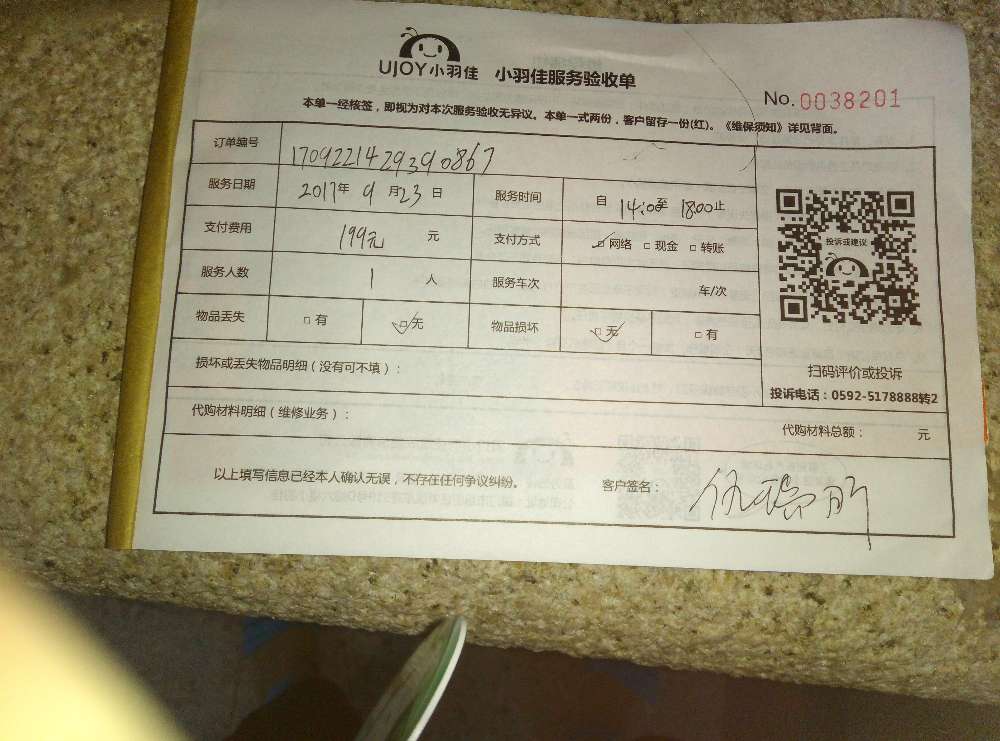 UJOY小羽佳 小羽佳服务验收单
No. 0038201
本单一经核签，即视为对本次服务验收无异议。本单一式两份，客户留存一份(红)。《维保须知》详见背面。
订单编号 1709221429390867
服务日期 2017年 9月23日 服务时间 自 14:0至 18:00止
支付费用 199元 元 支付方式 ☑网络 □现金 □转账
服务人数 1 人 服务车次 车/次
物品丢失 □有 ☑无 物品损坏 ☑无 □有
投诉或建议
扫码评价或投诉
投诉电话：0592-5178888转2
损坏或丢失物品明细（没有可不填）：
代购材料明细（维修业务）： 代购材料总额： 元
以上填写信息已经本人确认无误，不存在任何争议纠纷。 客户签名：